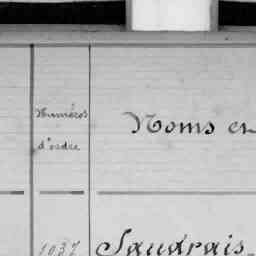 Numéros
d'ordre
Noms en
1037 Saudrais